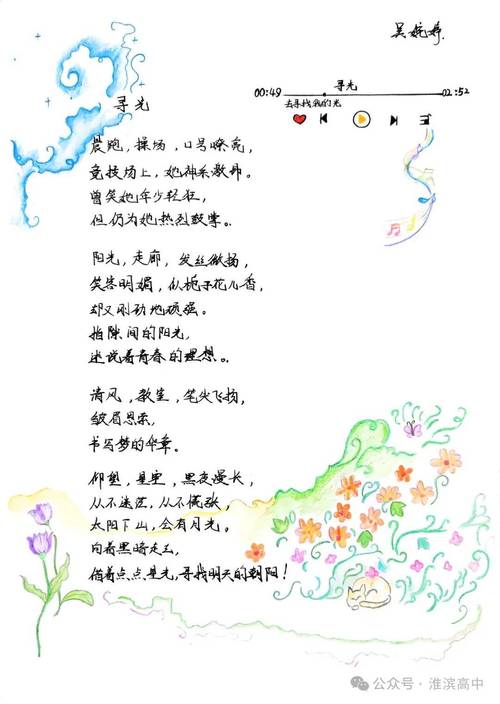 吴婉婷
寻光
00:49
02:52
去寻找我的光
寻光
晨跑，操场，口号嘹亮，
竞技场上，她神采激昂。
曾笑她年少轻狂，
但仍为她热烈鼓掌。
阳光，走廊，发丝微扬，
笑容明媚，似栀子花儿香，
却又刚劲地顽强。
指隙间的阳光，
述说着青春的理想。
清风，教室，笔尖飞扬，
皱眉思索，
书写梦的华章。
仰望，星空，黑夜漫长，
从不迷茫，从不慌张，
太阳下山，会有月光。
向着黑暗走去，
借着点点星光，寻找明天的朝阳！
公众号·淮滨高中